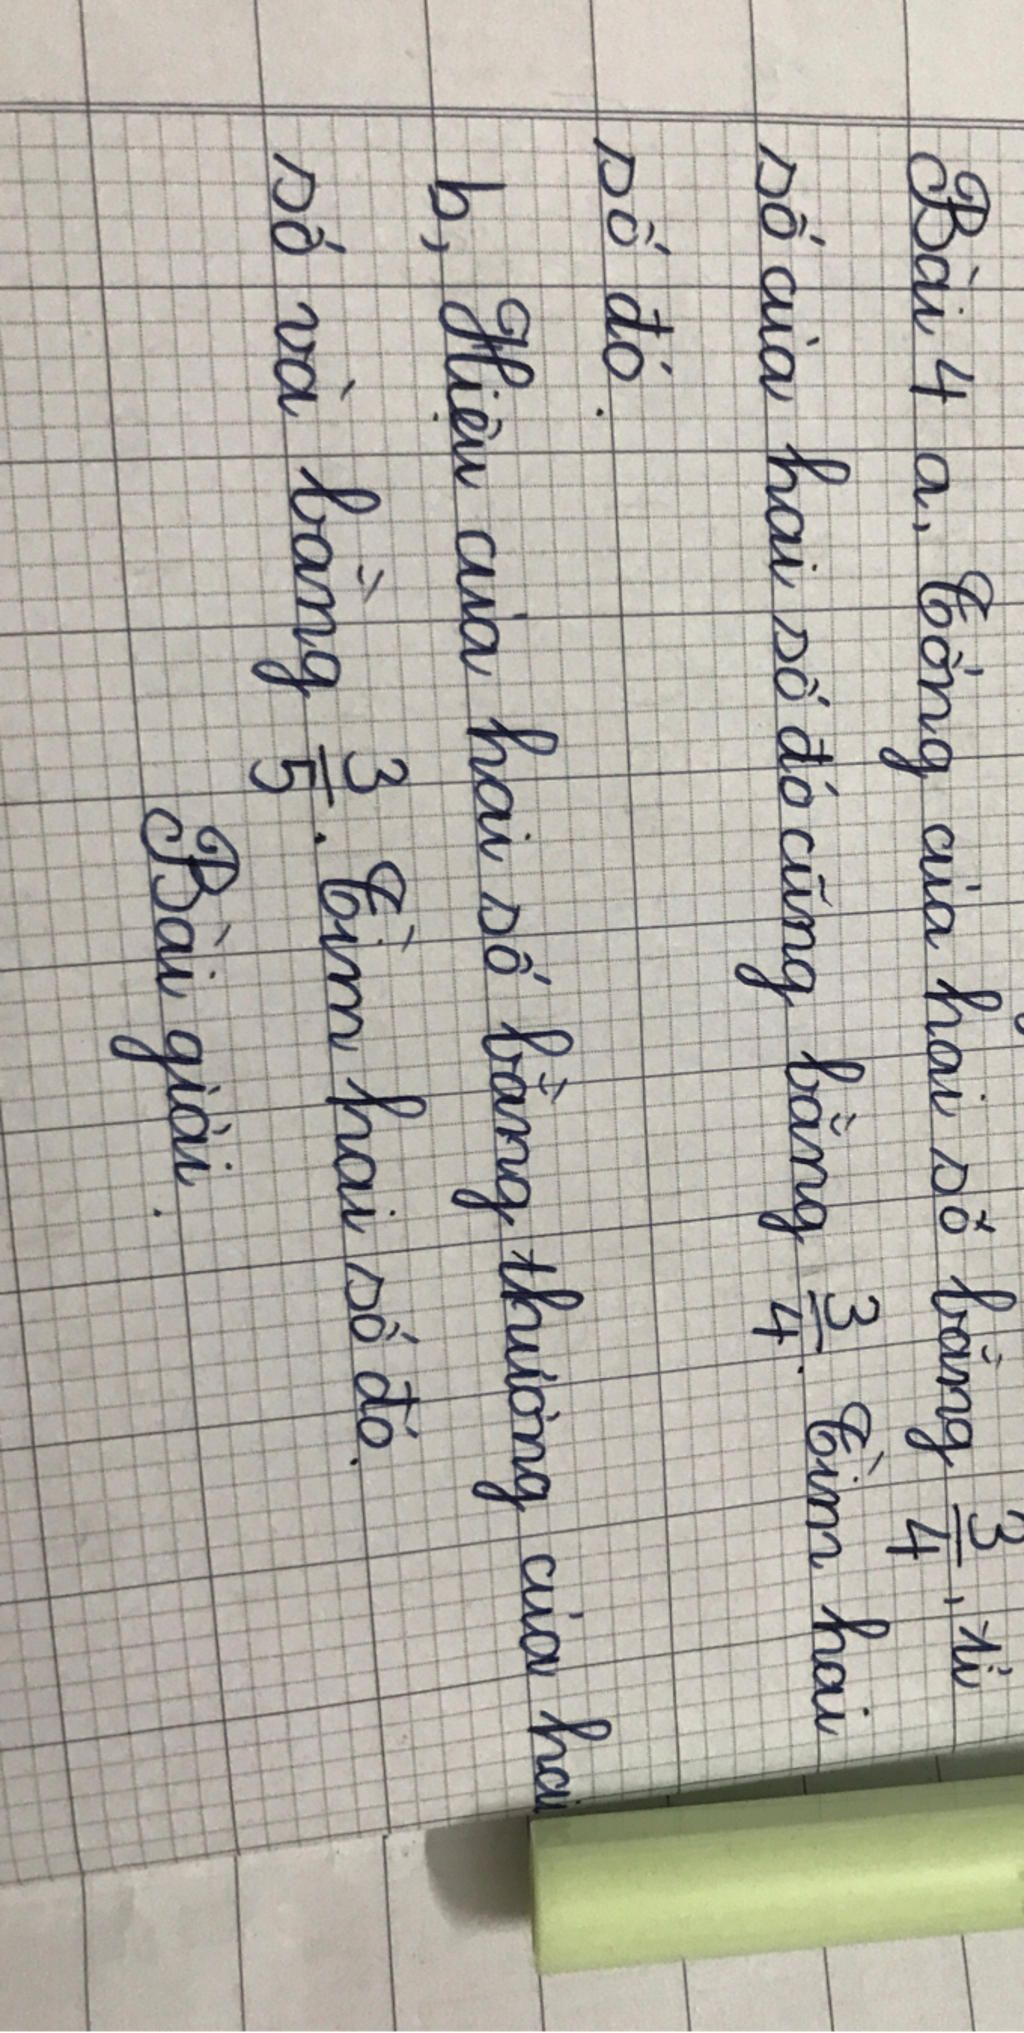 Bài 4 a, Tổng của hai số bằng 3/4, tỉ
số của hai số đó cũng bằng 3/4. Tìm hai
số đó.
b, Hiệu của hai số bằng thương của hai
số và bằng 3/5. Tìm hai số đó.
Bài giải.